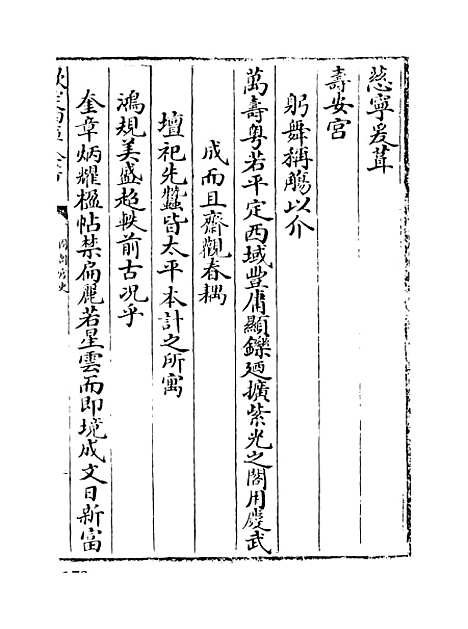 慈寧爰葺
壽安宮
躬舞稱觴以介
萬壽粤若平定西域豐庸顯鑠廼擴紫光之閣用慶武
成而且齋觀春耦
壇祀先蠶皆太平本計之所寓
鴻規美盛超軼前古况乎
奎章炳耀楹帖禁扁麗若星雲而即境成文日新富
國朝宫史